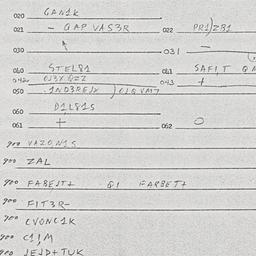 020 GAN1K
021 - GAP VAS3R 022 PRI)ZB1
030 031 -
060 STEL81 061 SAFIT
042 OJ3XQZZ 043 +
050 .1ND3REJX )OLQVM7
060 D1L81S
061 + 062 O
900 VAZON1S
900 ZAL
900 FABEJT+ QI FARBET+
900 FIT3R-
900 CVONC1K
900 C1IM
900 JEJD+TUK